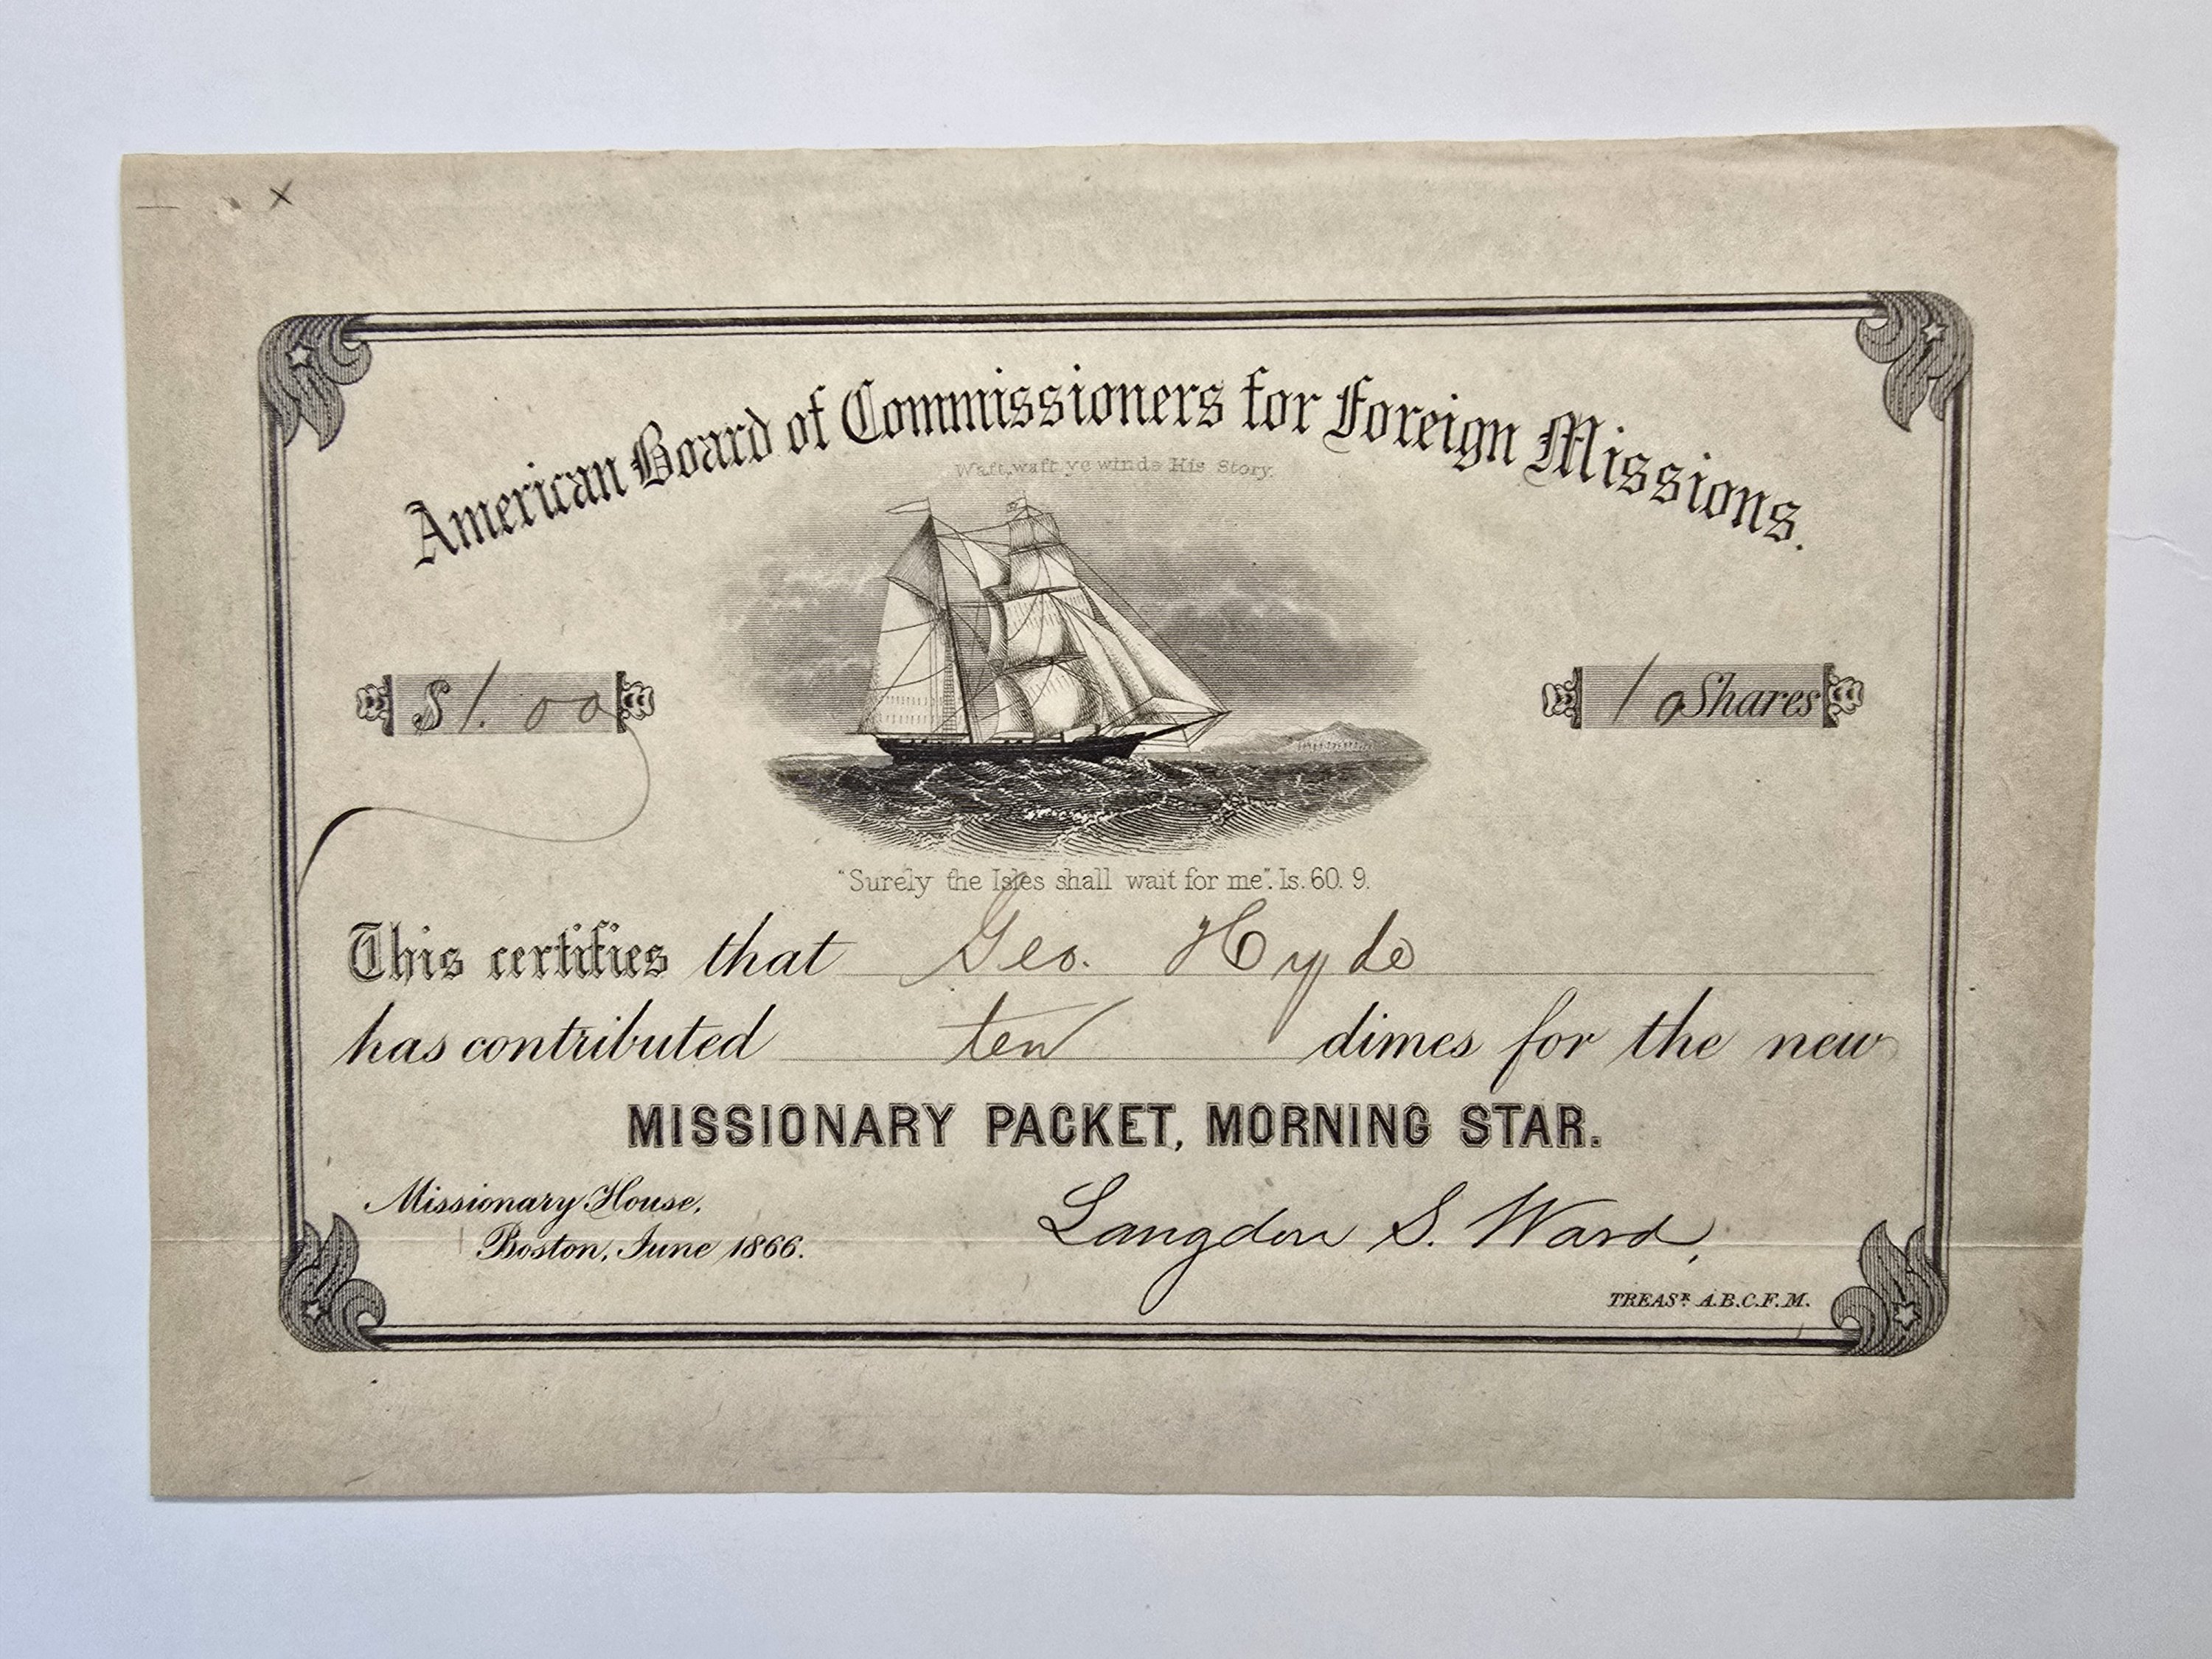 x
American Board of Commissioners for Foreign Missions.
Waft, waft ye winds His Story.
$1.00
10 Shares
"Surely the Isles shall wait for me". Is. 60. 9.
This certifies that Geo. Hyde
has contributed ten dimes for the new
MISSIONARY PACKET, MORNING STAR.
Missionary House,
Boston, June 1866.
Langdon S. Ward,
TREASR. A.B.C.F.M.